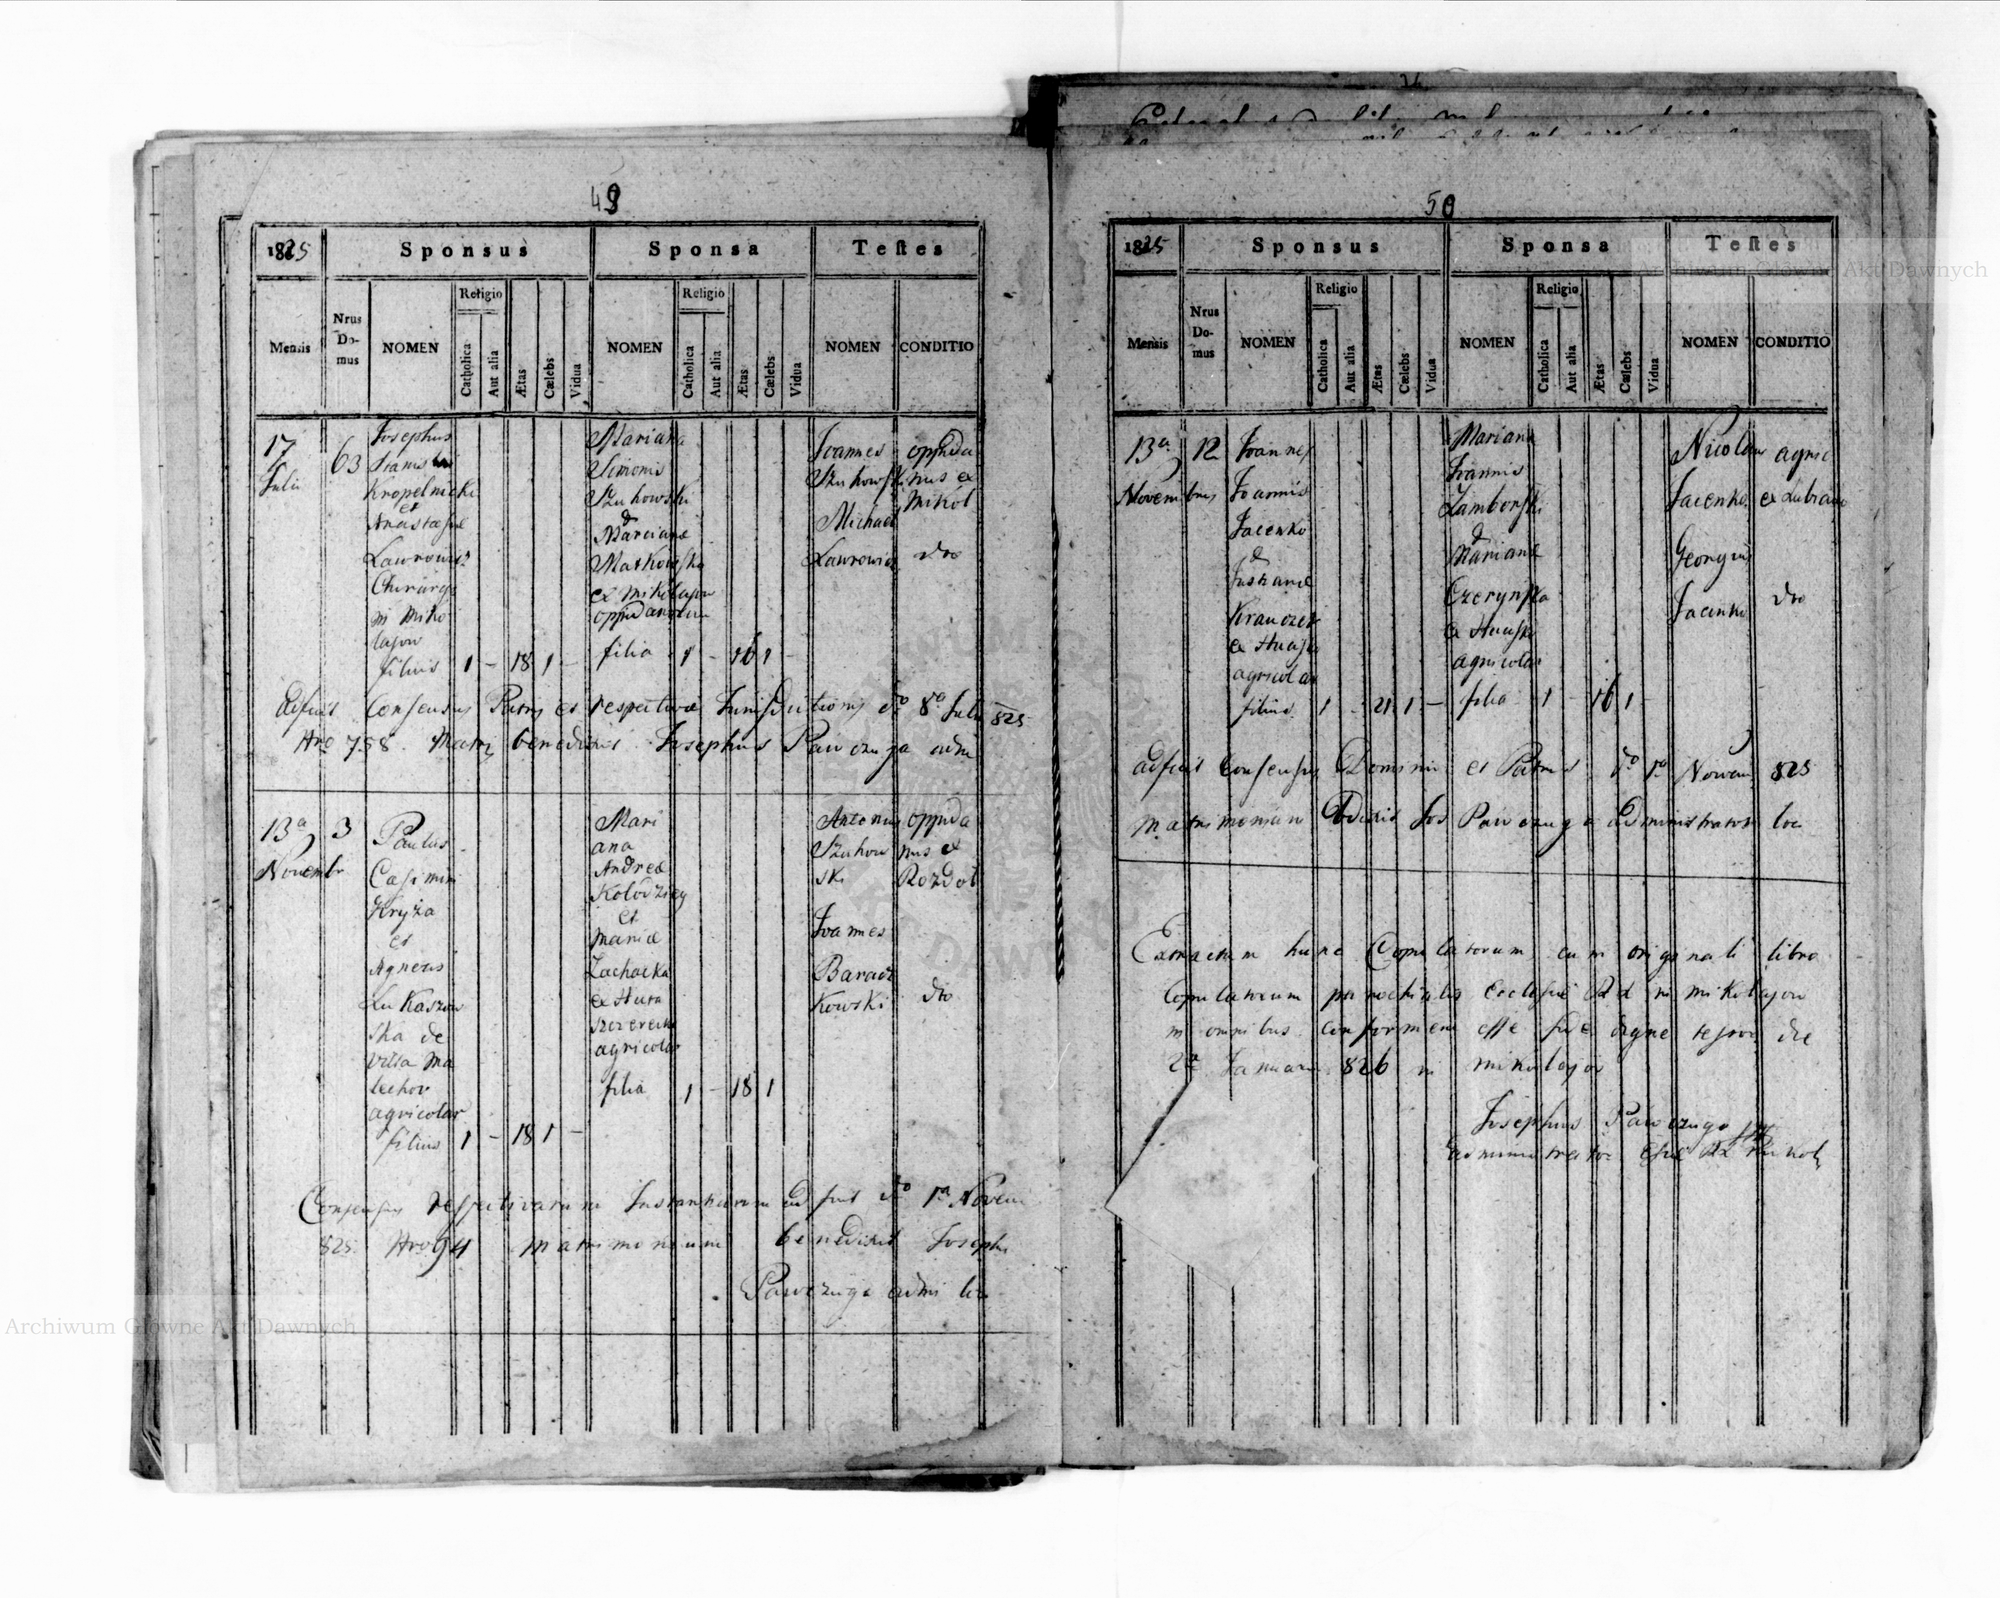 49
1825
Sponsus
Sponsa
Teſtes
Mensis
Nrus Do-mus
NOMEN
Religio
Catholica
Aut alia
Ætas
Cælebs
Vidua
NOMEN
Religio
Catholica
Aut alia
Ætas
Cælebs
Vidua
NOMEN
CONDITIO
17
Julii
63
Josephus
Kropelnicki
et
Anastasiæ
Lawrowicz
Chirurg
in Miko
lajow
filius 1 – 18 1 –
Mariana
Simonis
Szuhowski
&
Marciane
Matkowska
ex Mikolajow
oppidanorum
filia 1 – 16 1 –
Joannes
Szuhowski
Michael
Lawrowicz
oppida
nus ex
Mikol
dto
Adfuit Consensus Patris et respectivæ Jurisdictionis dto 8a Julii 825
Nro 758 Matri benedixit Josephus Pawczuga adm
13a
Novembr
3
Paulus
Casimiri
Kryża
et
Agnetis
Lukaszew
ska de
villa Ma
lechow
agricolar
filius 1 – 18 1 –
Mari
ana
Andreæ
Kołodziey
et
Mariæ
Zachacka
ex Huta
Szczerecka
agricolar
filia 1 – 18 1
Antonius
Szuhow
ski
Joannes
Baracz
kowski
oppida
nus ex
Rozdol
dto
Consensus respectivarum Instantiarum adfuit dto 1a Novem
825 Nro 94 Matrimonium benedixit Josephus
Pawczuga admi loci
50
1825
Sponsus
Sponsa
Teſtes
Mensis
Nrus Do-mus
NOMEN
Religio
Catholica
Aut alia
Ætas
Cælebs
Vidua
NOMEN
Religio
Catholica
Aut alia
Ætas
Cælebs
Vidua
NOMEN
CONDITIO
13a
Novembris
12
Joannes
Joannis
Jacenko
&
Justianæ
Krawczek
agricolar
filius 1 – 21 1 –
Mariana
Joannis
Zamborski
&
Marianæ
Czerynska
agricolar
filia 1 – 16 1 –
Nicolaus
Jacenko
Georgius
Jacenko
agric
ex Lubiana
dto
Adfuit Consensus Dominii et Patris dto 1a Novem 825
Matrimonium Bdixit Jos Pawczuga Administrator loci
Extractum hunc Copulatorum cum originali libro
Copulatorum parochialis Ecclesiæ in Mikolajow
in omnibus conformem esse fide digne testor die
2a Januar 826 in Mikolajow
Josephus Pawczuga
Administrator Mikol
Archiwum Główne Akt Dawnych
Archiwum Główne Akt Dawnych